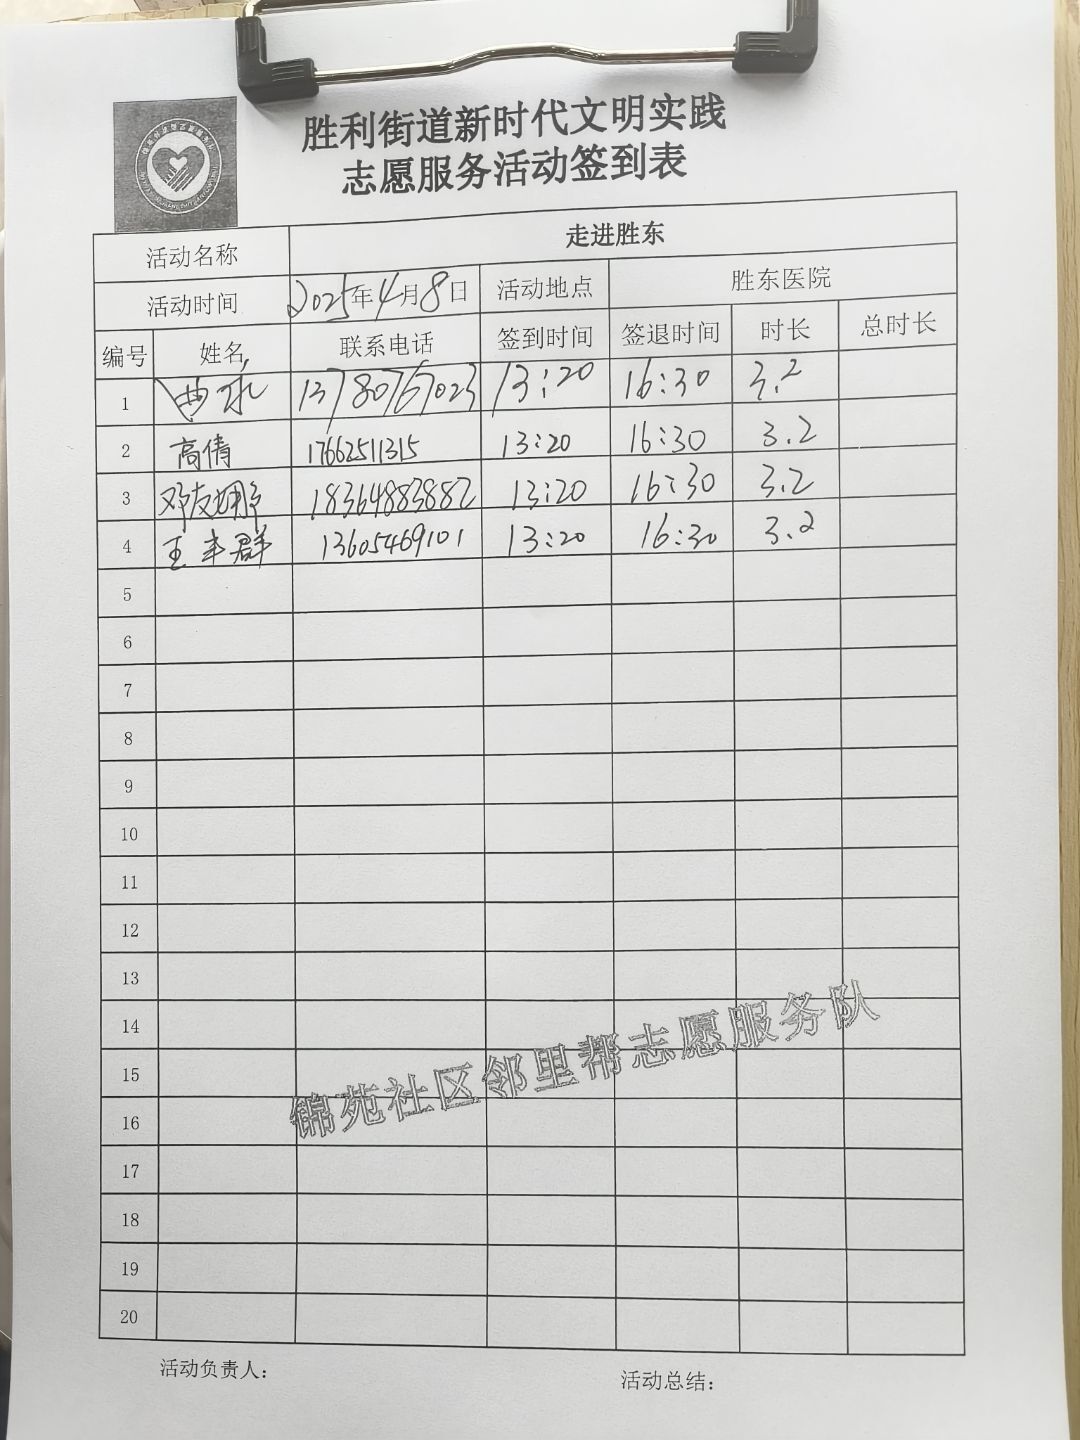 胜利街道新时代文明实践
志愿服务活动签到表
活动名称 走进胜东
活动时间 2025年4月8日 活动地点 胜东医院
编号 姓名 联系电话 签到时间 签退时间 时长 总时长
1 曲冰 13780767023 13:20 16:30 3.2
2 高倩 17662511315 13:20 16:30 3.2
3 邓友娜 18364883882 13:20 16:30 3.2
4 王丰群 13605469101 13:20 16:30 3.2
5
6
7
8
9
10
11
12
13
14
15
16
17
18
19
20
锦苑社区邻里帮志愿服务队
活动负责人: 活动总结: